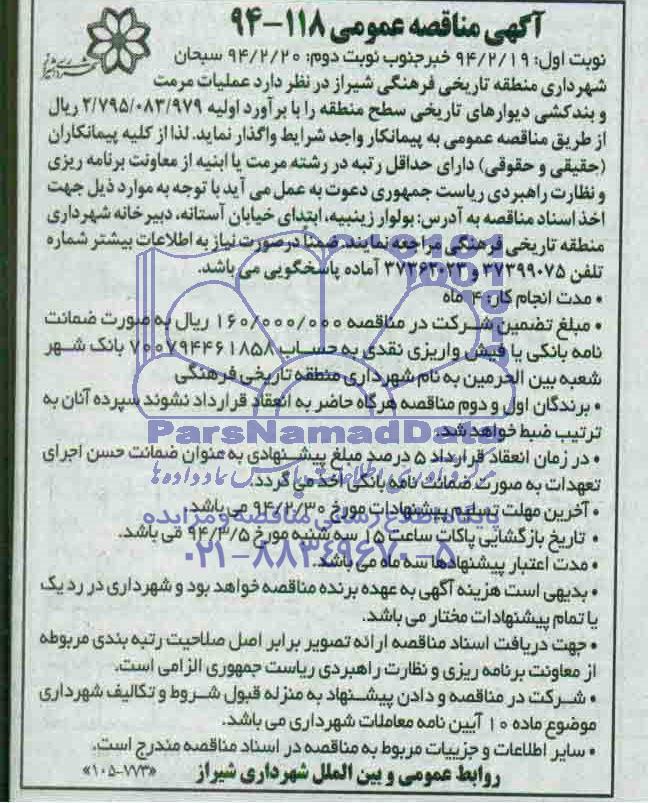 آگهی مناقصه عمومی ۱۱۸-۹۴
نوبت اول: ۹۴/۲/۱۹ خبرجنوب نوبت دوم: ۹۴/۲/۲۰ سبحان
شهرداری منطقه تاریخی فرهنگی شیراز در نظر دارد عملیات مرمت
و بندکشی دیوارهای تاریخی سطح منطقه را با برآورد اولیه ۲/۷۹۵/۰۸۳/۹۷۹ ریال
از طریق مناقصه عمومی به پیمانکار واجد شرایط واگذار نماید. لذا از کلیه پیمانکاران
(حقیقی و حقوقی) دارای حداقل رتبه در رشته مرمت یا ابنیه از معاونت برنامه ریزی
و نظارت راهبردی ریاست جمهوری دعوت به عمل می آید با توجه به موارد ذیل جهت
اخذ اسناد مناقصه به آدرس: بولوار زینبیه، ابتدای خیابان آستانه، دبیرخانه شهرداری
منطقه تاریخی فرهنگی مراجعه نمایند. ضمنا درصورت نیاز به اطلاعات بیشتر شماره
تلفن ۳۷۳۹۹۰۷۵ و ۳۷۳۶۲۰۲۳ آماده پاسخگویی می باشد.
• مدت انجام کار: ۴ ماه
• مبلغ تضمین شرکت در مناقصه ۱۶۰/۰۰۰/۰۰۰ ریال به صورت ضمانت
نامه بانکی یا فیش واریزی نقدی به حساب ۷۰۰۷۹۴۴۶۱۸۵۸ بانک شهر
شعبه بین الحرمین به نام شهرداری منطقه تاریخی فرهنگی
• برندگان اول و دوم مناقصه هرگاه حاضر به انعقاد قرارداد نشوند سپرده آنان به
ترتیب ضبط خواهد شد.
ParsNamadData
• در زمان انعقاد قرارداد ۵ درصد مبلغ پیشنهادی به عنوان ضمانت حسن اجرای
تعهدات به صورت ضمانت نامه بانکی اخذ می گردد.
• آخرین مهلت تسلیم پیشنهادات مورخ ۹۴/۲/۳۰ می باشد.
پایگاه اطلاع رسانی مناقصه و مزایده
• تاریخ بازگشایی پاکات ساعت ۱۵ سه شنبه مورخ ۹۴/۳/۵ می باشد.
۰۲۱-۸۸۳۴۹۶۷۰-۵
• مدت اعتبار پیشنهادها سه ماه می باشد.
• بدیهی است هزینه آگهی به عهده برنده مناقصه خواهد بود و شهرداری در رد یک
یا تمام پیشنهادات مختار می باشد.
• جهت دریافت اسناد مناقصه ارائه تصویر برابر اصل صلاحیت رتبه بندی مربوطه
از معاونت برنامه ریزی و نظارت راهبردی ریاست جمهوری الزامی است.
• شرکت در مناقصه و دادن پیشنهاد به منزله قبول شروط و تکالیف شهرداری
موضوع ماده ۱۰ آیین نامه معاملات شهرداری می باشد.
• سایر اطلاعات و جزییات مربوط به مناقصه در اسناد مناقصه مندرج است.
روابط عمومی و بین الملل شهرداری شیراز «۱۰۵-۷۷۳»